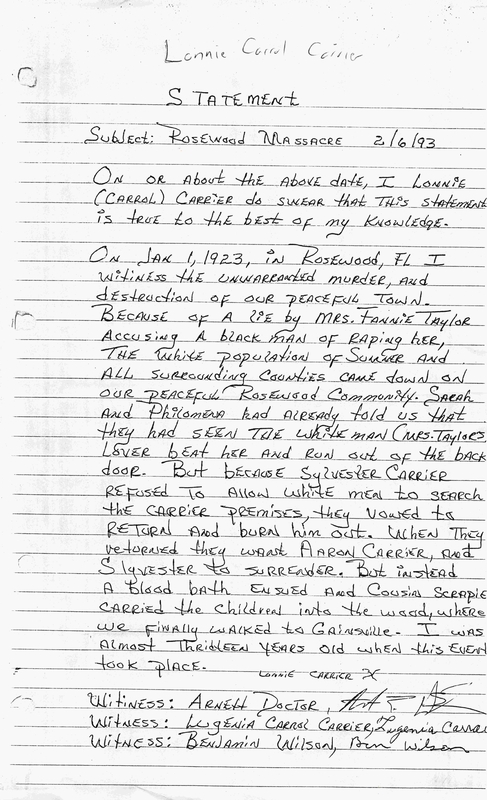 Lonnie Carrol Carrier
STATEMENT
Subject: Rosewood Massacre 2/6/93
On or about the above date, I Lonnie
(Carrol) Carrier do swear that this statement
is true to the best of my knowledge.
On Jan 1, 1923, in Rosewood, FL I
witiness the unwarranted murder, and
destruction of our peaceful town.
Because of a lie by Mrs. Fannie Taylor
accusing a black man of raping her,
the white population of Sumner and
all surrounding counties came down on
our peaceful Rosewood Community. Sarah
and Philomena had already told us that
they had seen the white man (Mrs. Taylors
lover beat her and run out of the back
door. But because Sylvester Carrier
refused to allow white men to search
the Carrier premises, they vowed to
return and burn him out. When they
returned they want Aaron Carrier, and
Slyvester to surrender. But instead
a blood bath ensued and Cousin Scrapie
carried the children into the wood, where
we finally walked to Gainsville. I was
almost thridteen years old when this event
took place.
Lonnie Carrier X
Witiness: Arnett Doctor,
Witness: Lugenia Carrol Carrier, Lugenia Carrol
Witness: Benjamin Wilson, Ben Wilson